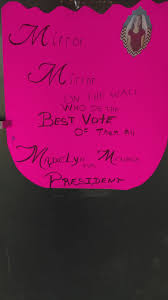 Mirror,
Mirror
on the wall
who is the
Best Vote
of them all
Madelyn for
President